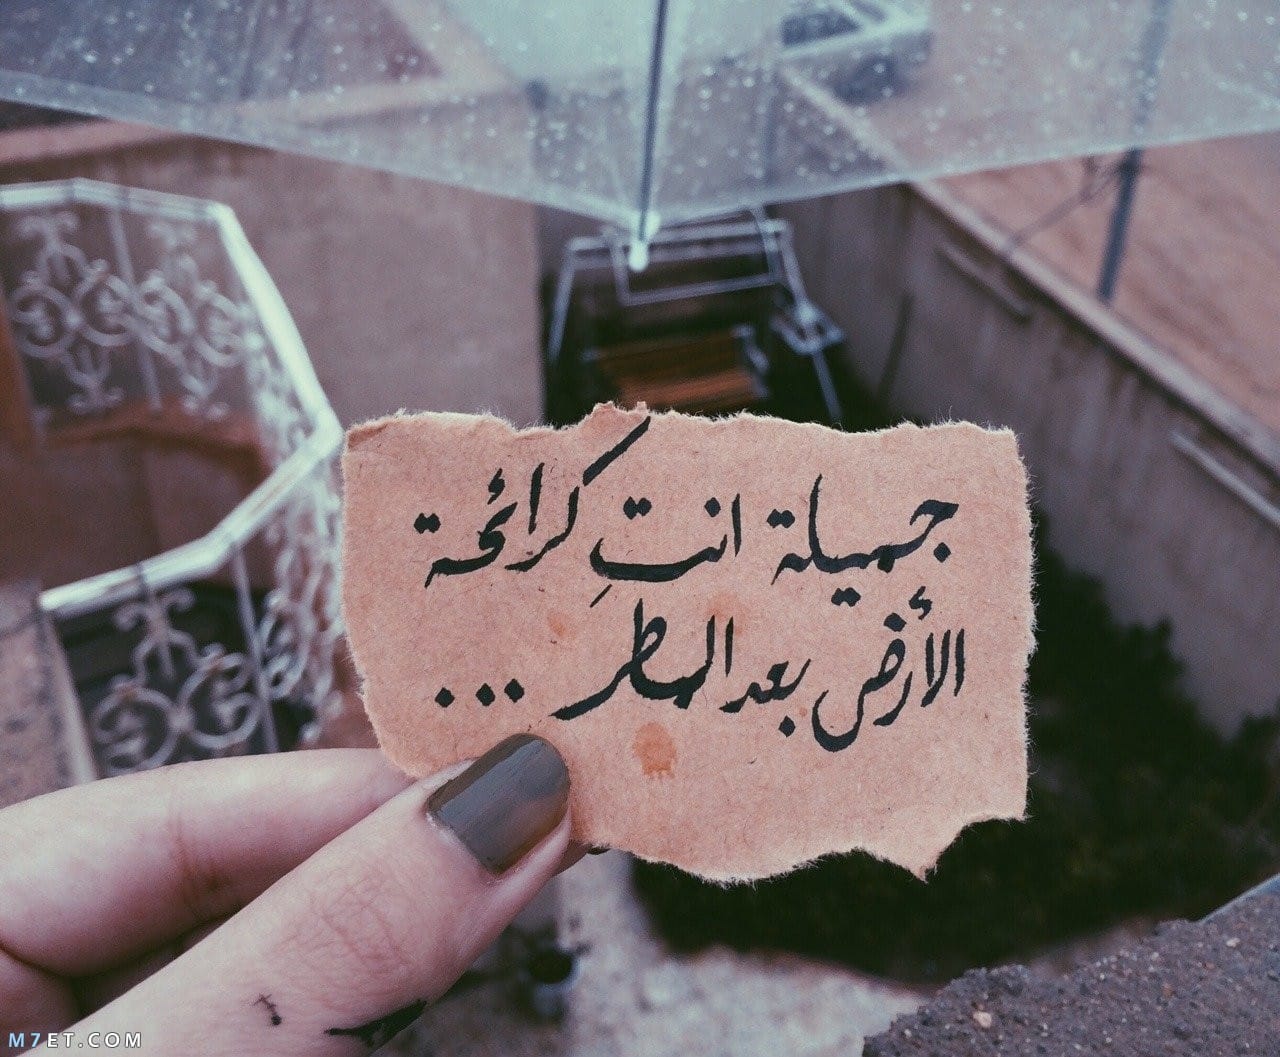 جميلة انتِ كرائحة
الأرض بعد المطر ...
M7ET.COM